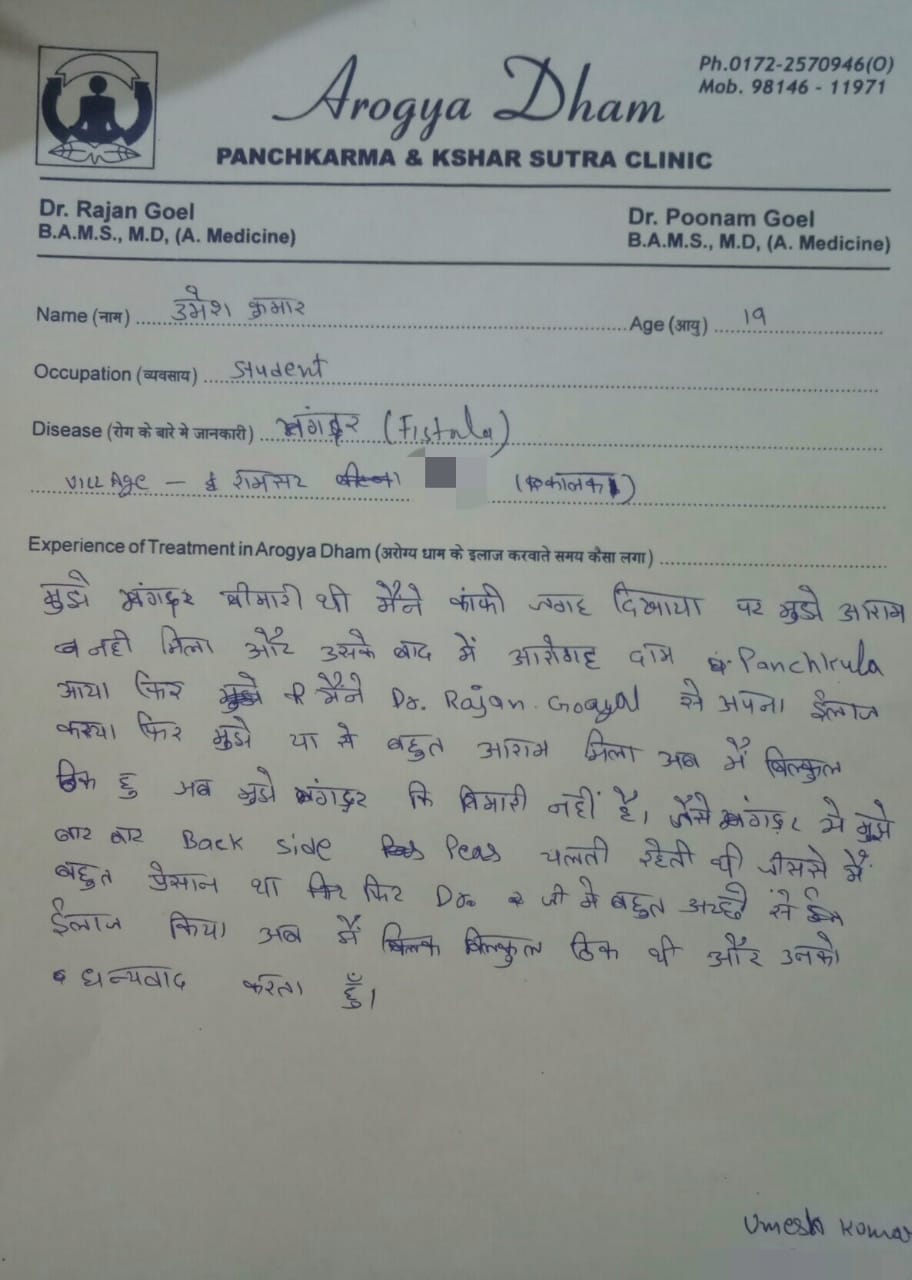 Arogya Dham
Ph.0172-2570946(O)
Mob. 98146 - 11971
PANCHKARMA & KSHAR SUTRA CLINIC
Dr. Rajan Goel
B.A.M.S., M.D, (A. Medicine)
Dr. Poonam Goel
B.A.M.S., M.D, (A. Medicine)
Name (नाम) उमेश कुमार Age (आयु) 19
Occupation (व्यवसाय) Student
Disease (रोग के बारे मे जानकारी) भंगद्दर (Fistula)
Village - रामसर (कालका)
Experience of Treatment in Arogya Dham (अरोग्य धाम के इलाज करवाते समय कैसा लगा)
मुझे भंगद्दर बीमारी थी मैंने काफी जगह दिखाया पर मुझे आराम
नही मिला और उसके बाद में आरोगह दाम Panchkula
आया फिर मैने Dr. Rajan Goayal से अपना ईलाज
करया फिर मुझे या से बहुत आराम मिला अब मैं बिल्कुल
ठिक हु अब मुझे भंगद्दर कि बिमारी नहीं है। जैसे भंगद्दर मे मुझे
बार बार Back side Peas चलती रहेती थी जीससे मैं
बहुत प्रेसान था फिर Dr. जी मे बहुत अच्छे से
ईलाज किया अब मैं बिल्कुल ठिक थी और उनको
धन्यवाद करता हूँ।
Umesh Kumar